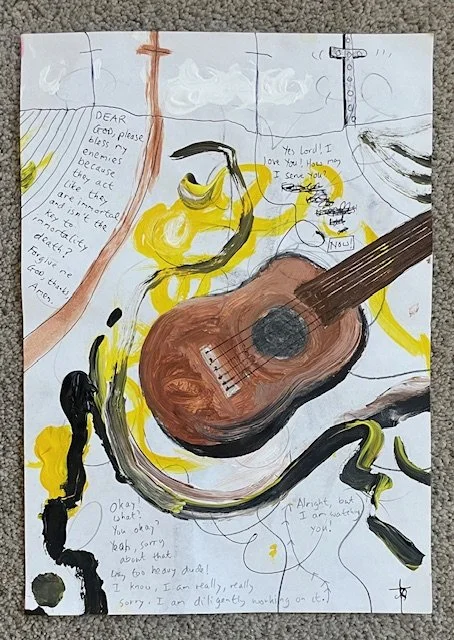 DEAR
God, please
bless my
enemies
because
they act
like they
are immortal
and isn't the
key to
immortality
death?
Forgive me
God thanks,
Amen.
Yes Lord! I
love You! How may
I serve You?
NOW!
Okay!
What?
You okay?
Yeah, sorry
about that
way too heavy dude!
I know, I am really, really
sorry. I am diligently working on it.
Alright, but
I am watching
you!